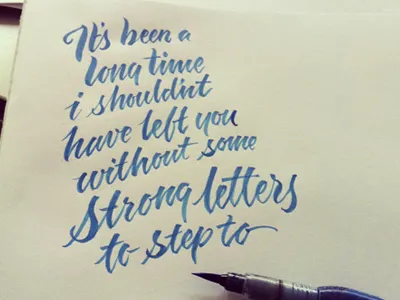 It's been a
long time
i shouldn't
have left you
without some
Strong letters
to step to